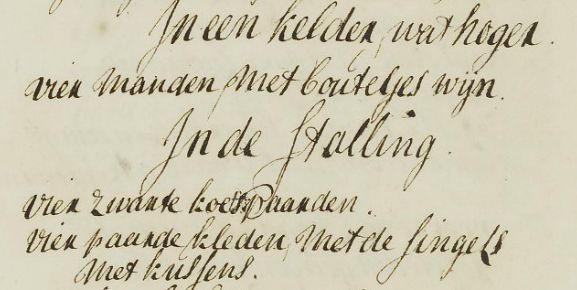 In een kelder, wat hoger.
vier manden met bouteljes wijn.
In de Stalling.
vier zwarte koetspaarden.
vier paarde kleden, met de singels
met kussens.